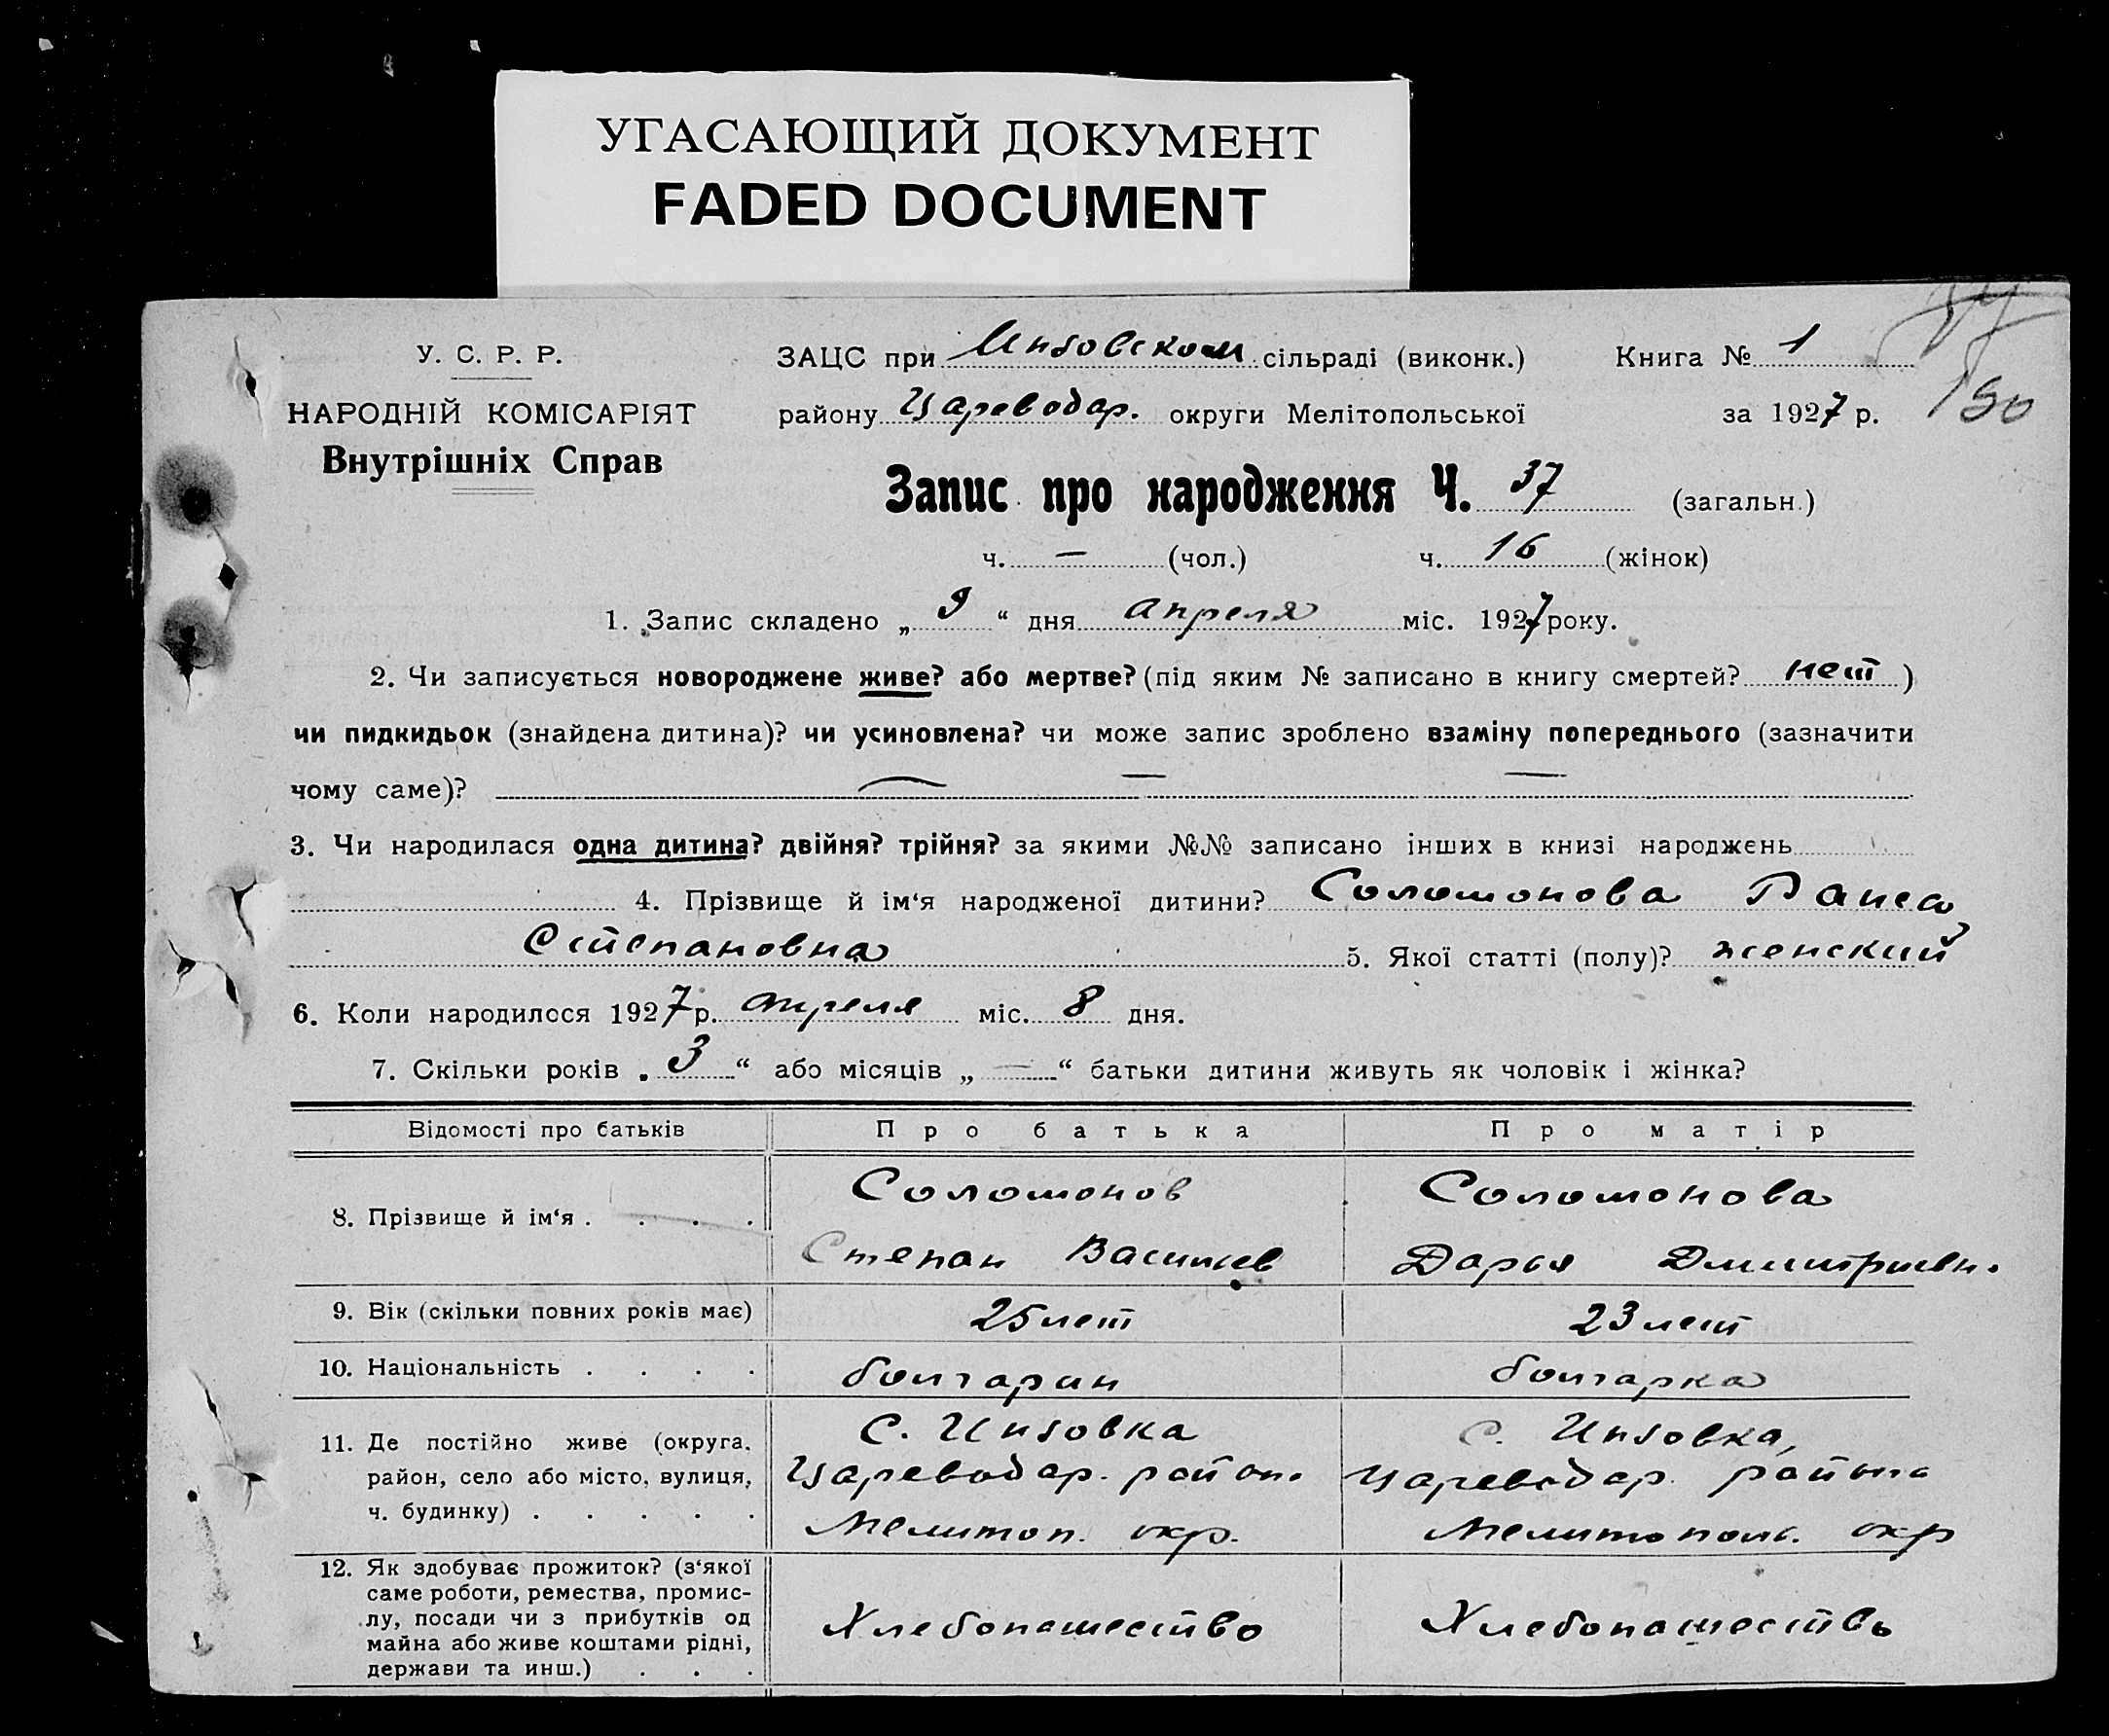 УГАСАЮЩИЙ ДОКУМЕНТ
FADED DOCUMENT
У. С. Р. Р.
НАРОДНІЙ КОМІСАРІЯТ
Внутрішніх Справ
ЗАЦС при Инзовском сільраді (виконк.) Книга № 1
району Цареводар. округи Мелітопольської за 1927 р. 150
Запис про народження Ч. 37 (загальн.)
ч. — (чол.) ч. 16 (жінок)
1. Запис складено „ 9 “ дня апреля міс. 1927 року.
2. Чи записується новороджене живе? або мертве? (під яким № записано в книгу смертей? нет )
чи пидкидьок (знайдена дитина)? чи усиновлена? чи може запис зроблено взаміну попереднього (зазначити
чому саме)? — — —
3. Чи народилася одна дитина? двійня? трійня? за якими №№ записано інших в книзі народжень
4. Прізвище й ім‘я народженої дитини? Соломонова Раиса
Степановна 5. Якої статті (полу)? женский
6. Коли народилося 1927 р. апреля міс. 8 дня.
7. Скільки років „ 3 “ або місяців „ — “ батьки дитини живуть як чоловік і жінка?
Відомості про батьків Про батька Про матір
8. Прізвище й ім‘я . . . .
Соломонов
Степан Васильев
Соломонова
Дарья Дмитриевн.
9. Вік (скільки повних років має) 25 лет 23 лет
10. Національність . . . . болгарин болгарка
11. Де постійно живе (округа,
район, село або місто, вулиця,
ч. будинку) . . . . .
С. Инзовка
Цареводар. района
Мелитоп. окр.
С. Инзовка,
Цареводар. района
Мелитопол. окр
12. Як здобуває прожиток? (з‘якої
саме роботи, ремества, промис-
лу, посади чи з прибутків од
майна або живе коштами рідні,
держави та инш.) . . .
Хлебопашество
Хлебопашество